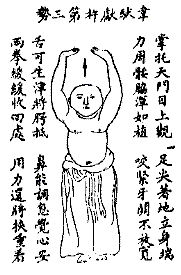 韋馱獻杵第三勢
掌托天門目上觀
足尖著地立身端
力周骽脇渾如植
咬緊牙關不放寬
舌可生津將腭抵
鼻能調息覺心安
兩拳緩緩收回處
用力還將挾重看